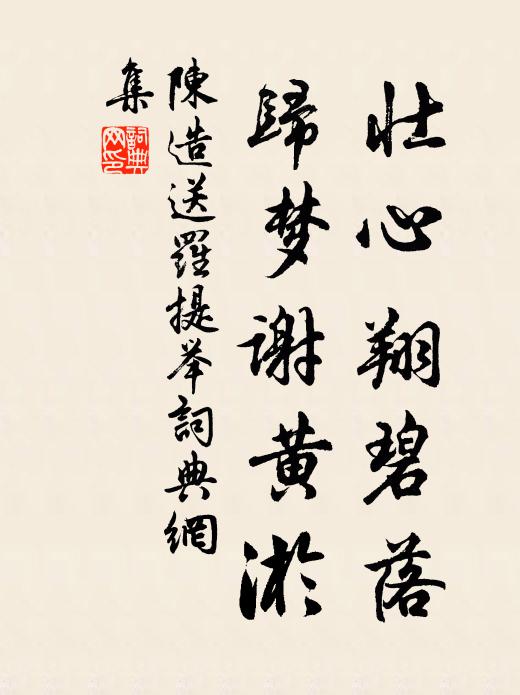 壮心翔碧落
歸梦谢黄淤
陳造送羅提举詞典網
集
詞典
网印